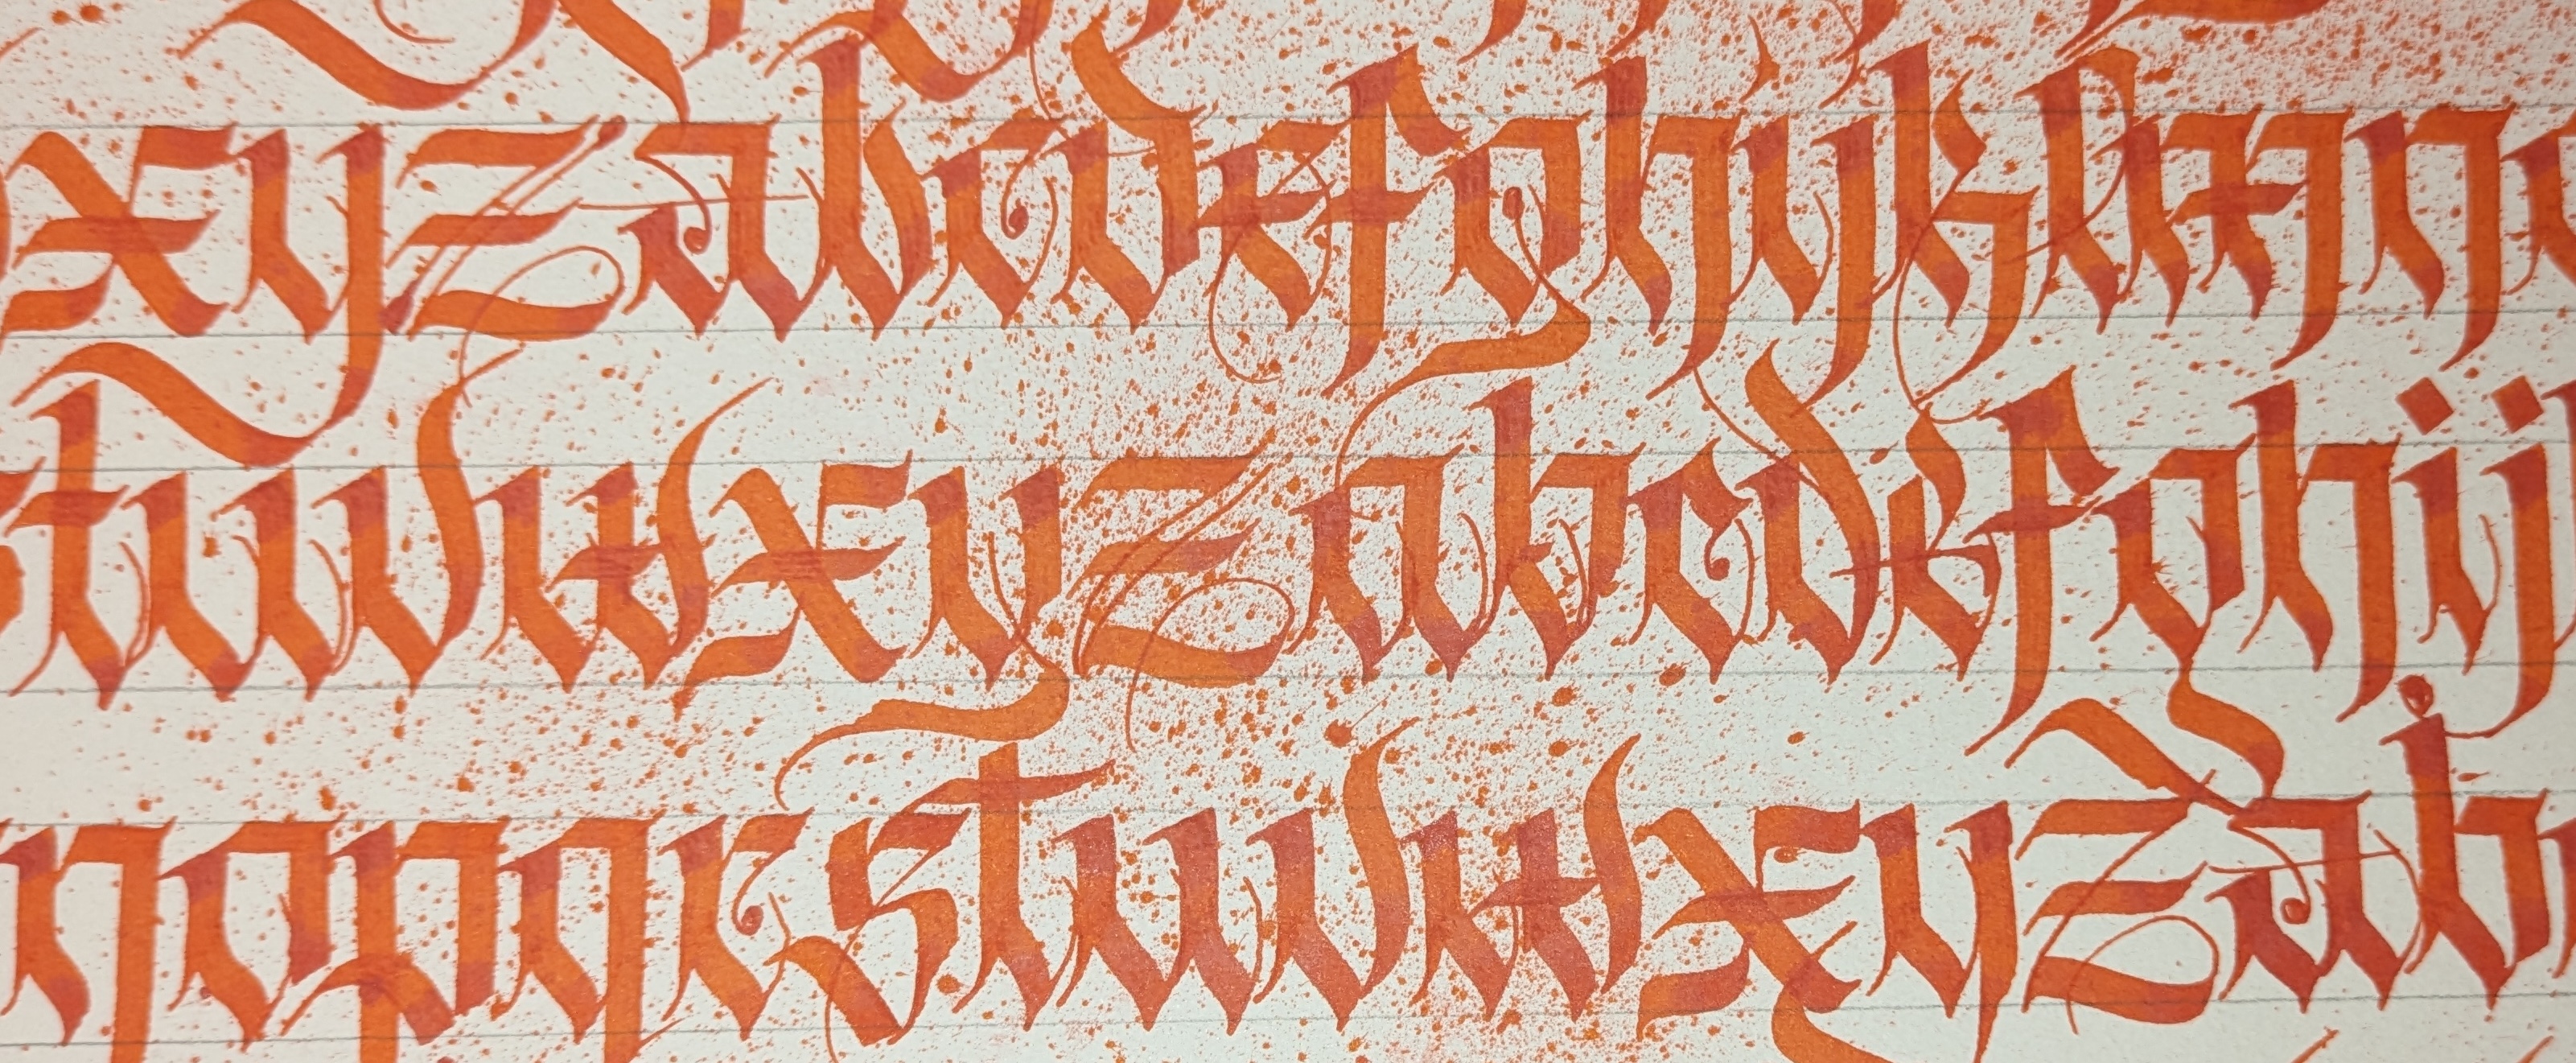 xyzabcdefghijklmn
tuvwxyzabcdefghij
nopqrstuvwxyzab